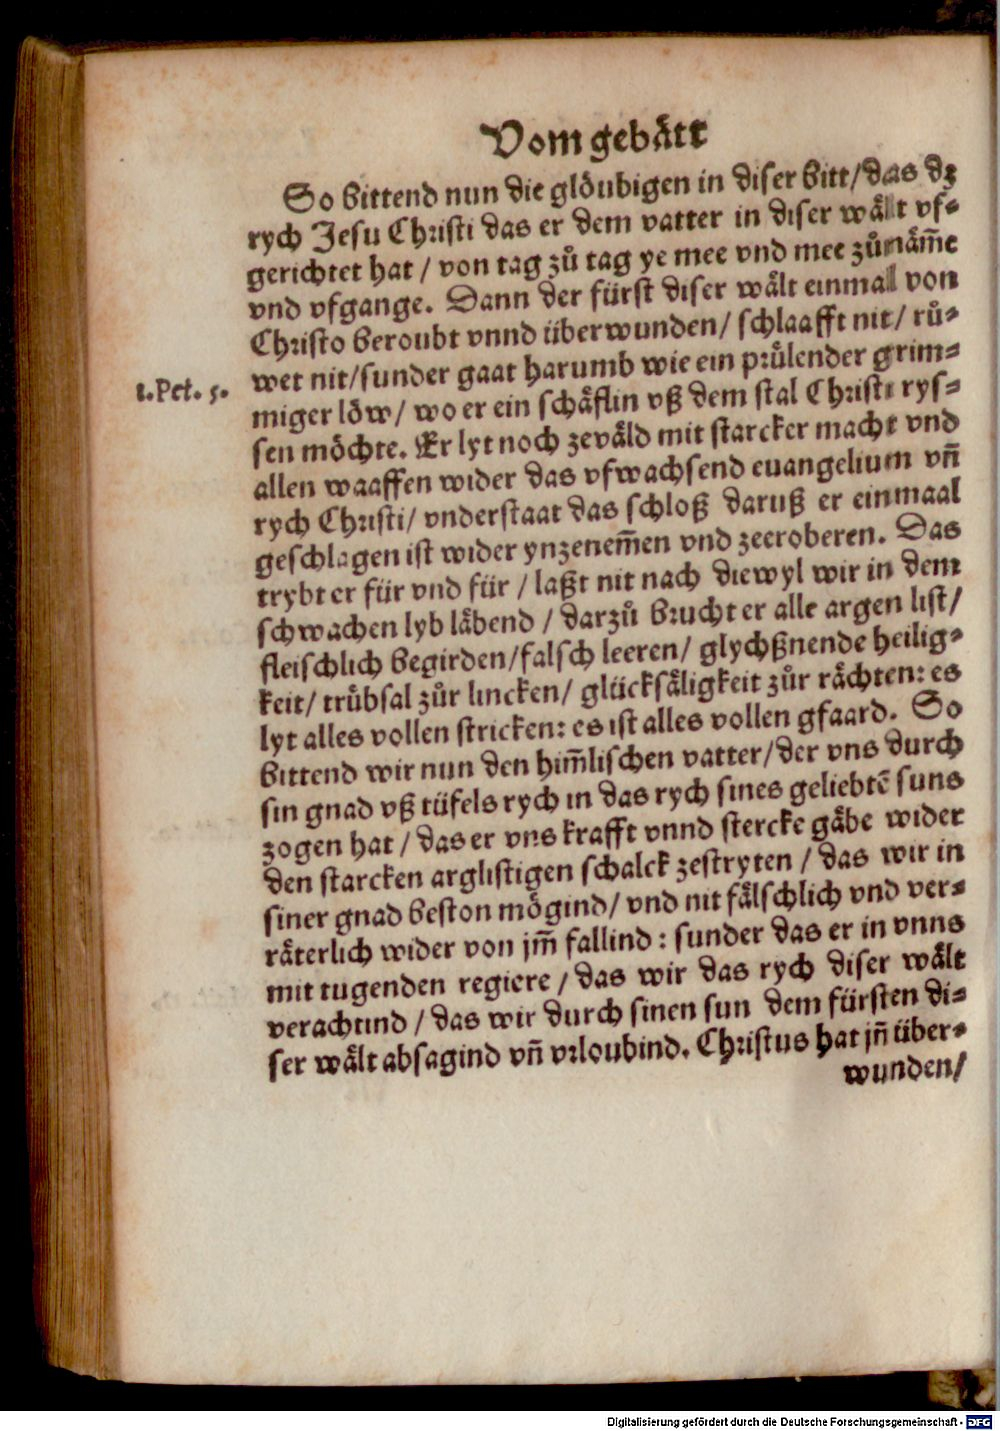 Vom gebaͤtt
So bittend nun die gloͤubigen in diser bitt/ das dz
rych Jesu Christi das er dem vatter in diser waͤlt vf-
gerichtet hat / von tag zuͦ tag ye mee vnd mee zuͦnaͤm̃e
vnd vfgange. Dann der fürst diser waͤlt einmal von
Christo beroubt vnnd überwunden/ schlaafft nit/ ruͦ-
wet nit/ sunder gaat harumb wie ein pruͤlender grim-
1. Pet. 5.
miger loͤw/ wo er ein schaͤflin vß dem stal Christi rys-
sen moͤchte. Er lyt noch zevaͤld mit starcker macht vnd
allen waaffen wider das vfwachsend euangelium vñ
rych Christi/ vnderstaat das schloß daruß er einmaal
geschlagen ist wider ynzenem̃en vnd zeeroberen. Das
trybt er für vnd für / laßt nit nach diewyl wir in dem
schwachen lyb laͤbend / darzuͦ brucht er alle argen list/
fleischlich begirden/ falsch leeren/ glychßnende heilig-
keit/ truͤbsal zuͦr lincken/ glücksaͤligkeit zuͦr raͤchten: es
lyt alles vollen stricken: es ist alles vollen gfaard. So
bittend wir nun den him̃lischen vatter/ der vns durch
sin gnad vß tüfels rych in das rych sines geliebtẽ suns
zogen hat / das er vns krafft vnnd stercke gaͤbe wider
den starcken arglistigen schalck zestryten / das wir in
siner gnad beston moͤgind/ vnd nit faͤlschlich vnd ver-
raͤterlich wider von jm̃ fallind : sunder das er in vnns
mit tugenden regiere / das wir das rych diser waͤlt
verachtind / das wir durch sinen sun dem fürsten di-
ser waͤlt absagind vñ vrloubind. Christus hat jñ über-
wunden/
Digitalisierung gefördert durch die Deutsche Forschungsgemeinschaft - DFG